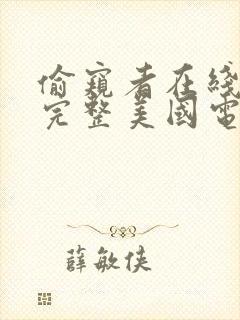 偷窺者在綫
完整美國電
薛敏俠